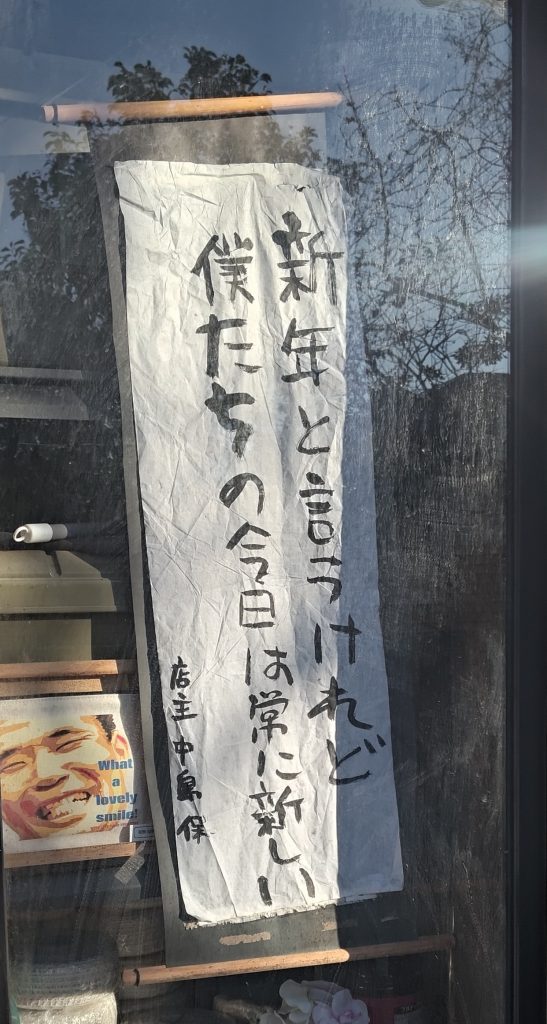 新年と言うけれど
僕たちの今日は常に新しい
店主 中島 保
What
a
lovely
smile!